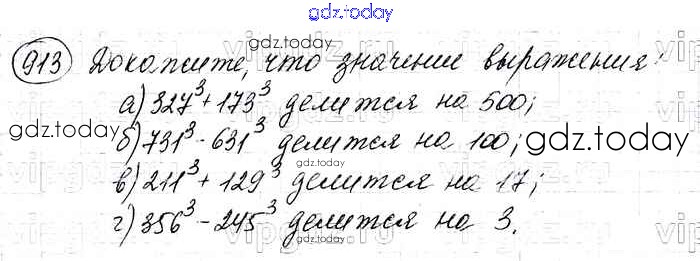 gdz.today
913 Докажите, что значение выражения:
gdz.today
а) 327³ + 173³ делится на 500;
б) 731³ - 631³ делится на 100;
gdz.today
gdz.today
gdz.today
в) 211³ + 129³ делится на 17;
г) 356³ - 245³ делится на 3.
gdz.today